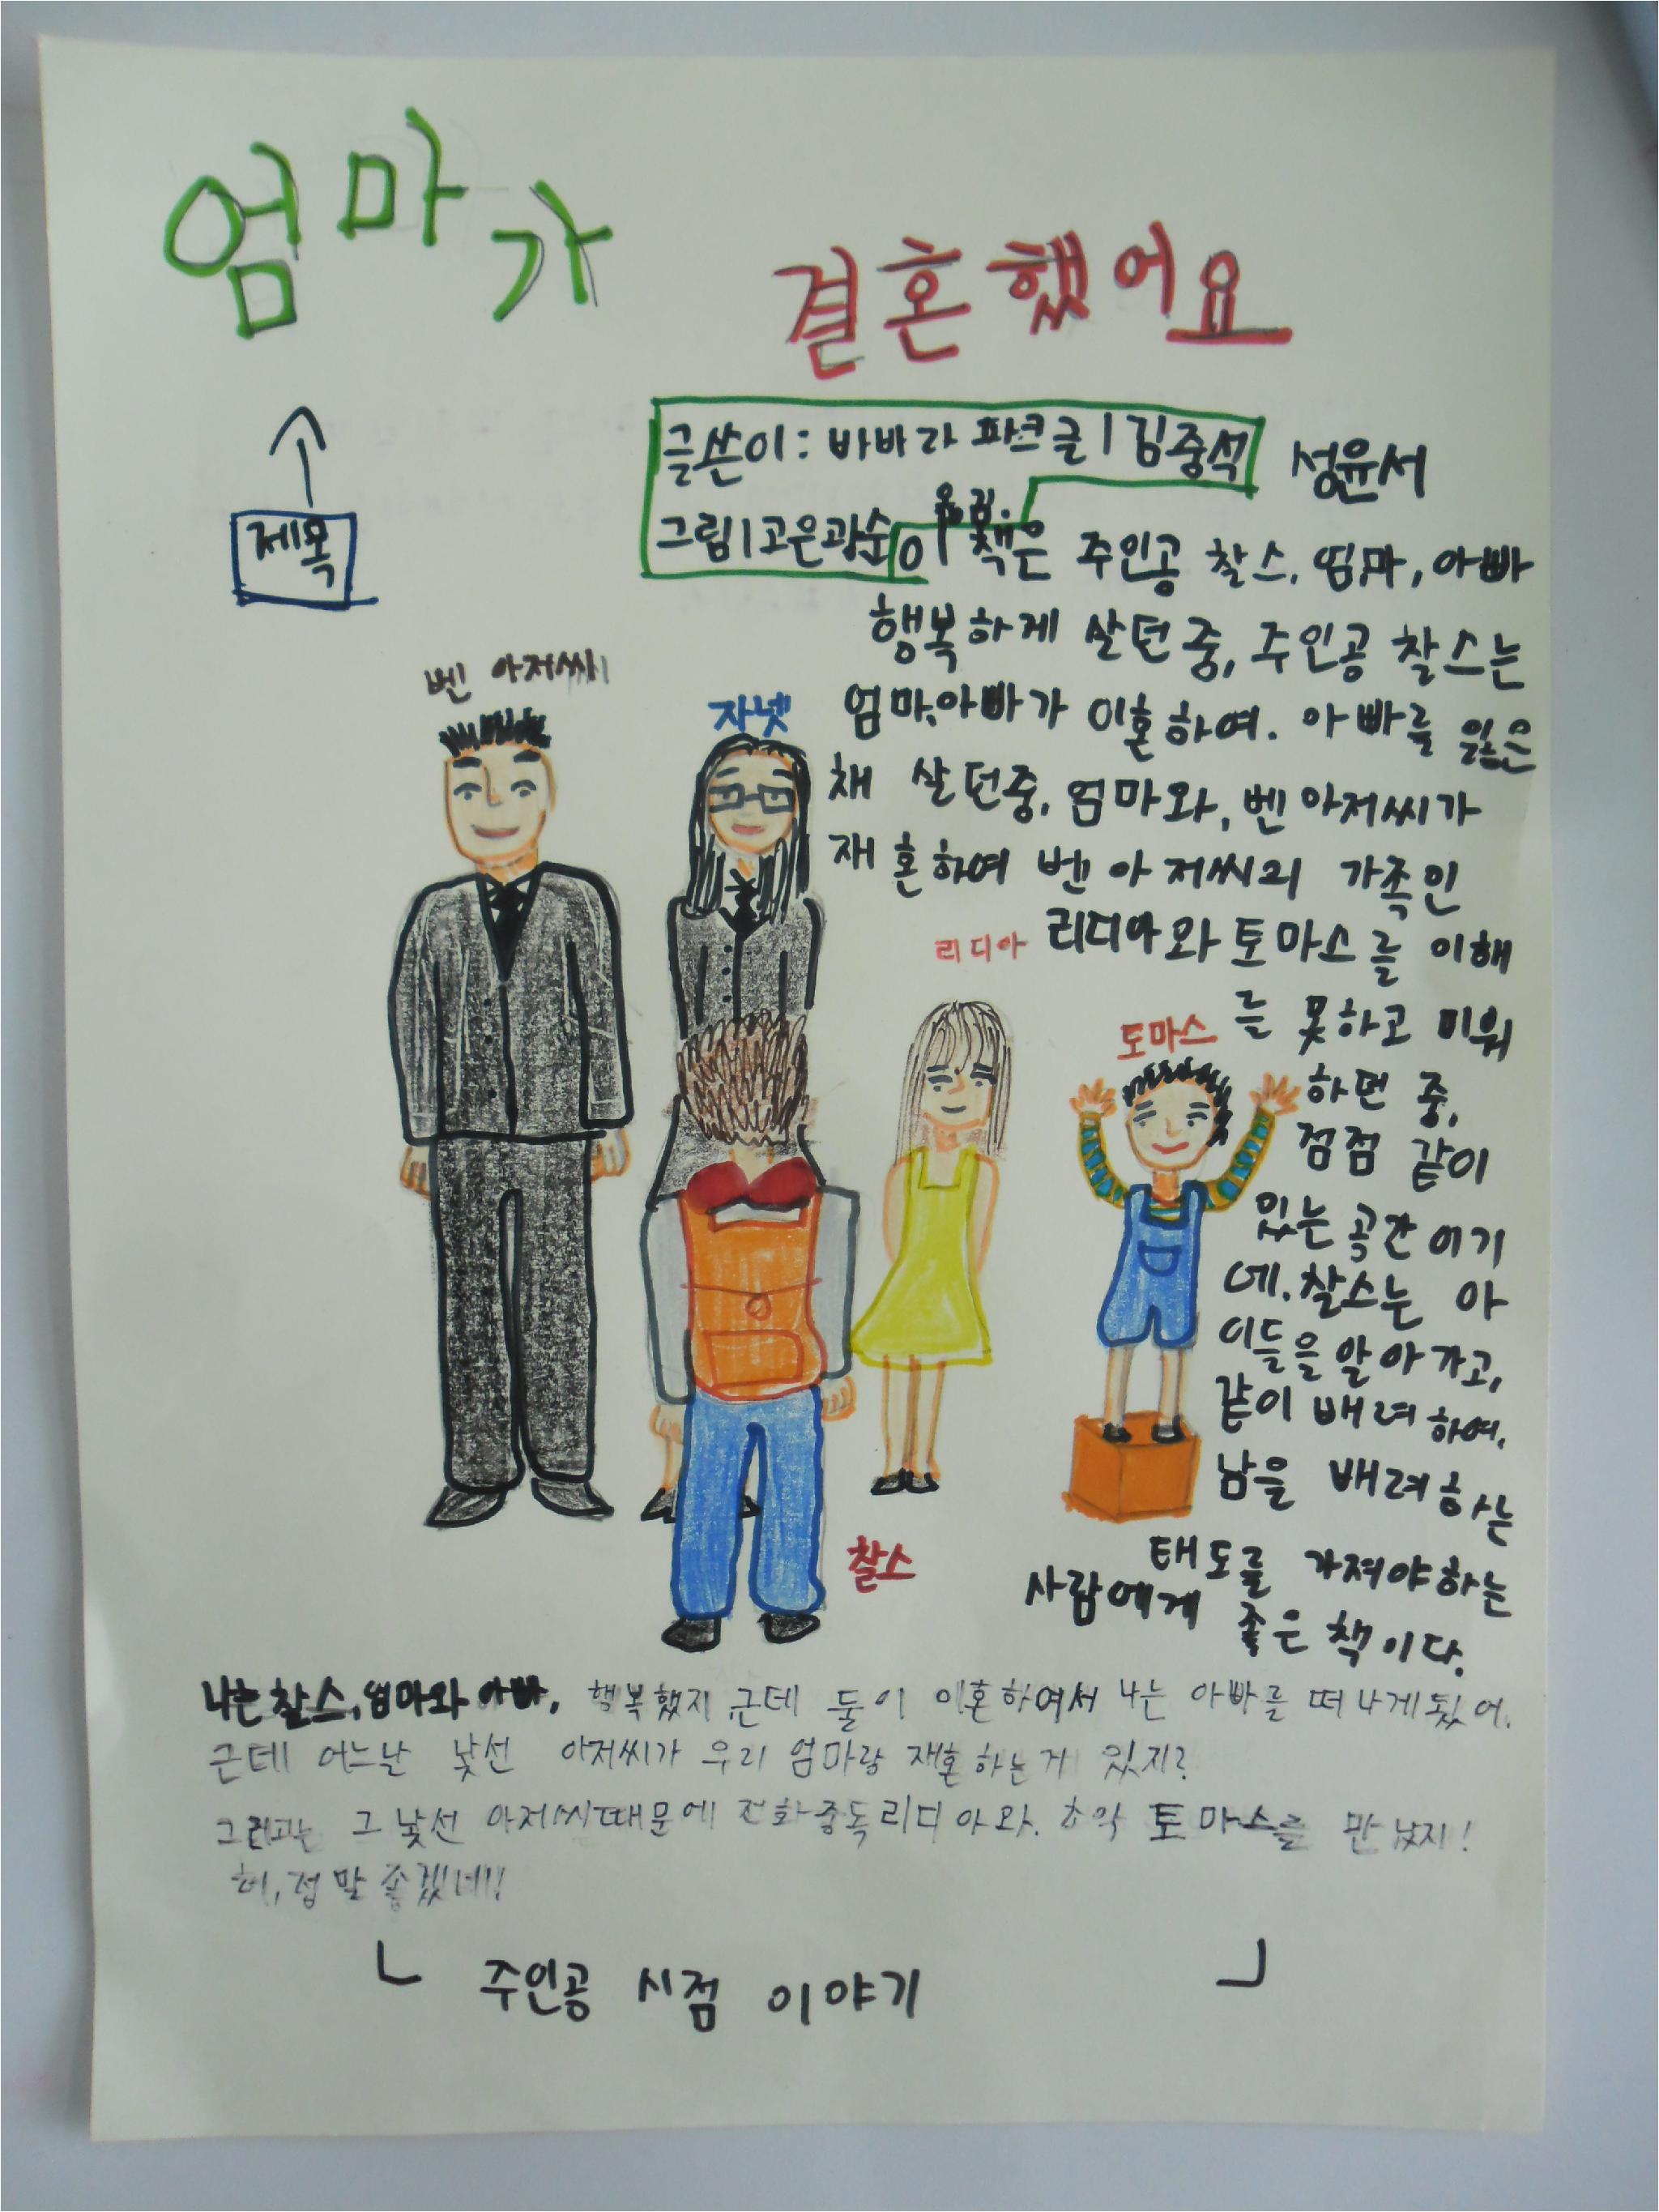 엄마가
결혼했어요
제목
글쓴이: 바바라 파크 글 | 김중석
그림 | 고은광순 옮김.
성윤서
이 책은 주인공 찰스. 엄마, 아빠
행복하게 살던 중, 주인공 찰스는
엄마, 아빠가 이혼하여. 아빠를 잃은
채 살던중, 엄마와, 벤 아저씨가
재혼하여 벤 아저씨의 가족인
리디아와 토마스를 이해
를 못하고 미워
하던 중,
점점 같이
있는 공간 이기
에. 찰스는 아
이들을 알아가고,
같이 배려하여,
남을 배려하는
태도를 가져야하는
사람에게 좋은 책이다.
벤 아저씨
자넷
리디아
토마스
찰스
나는 찰스, 엄마와 아빠, 행복했지 근데 둘이 이혼하여서 나는 아빠를 떠나게됬어.
근데 어느날 낯선 아저씨가 우리 엄마랑 재혼하는거 있지?
그 낯선 아저씨때문에 전화중독 리디아와. 토마스를 만났지!
허, 정말 좋겠네!!
주인공 시점 이야기